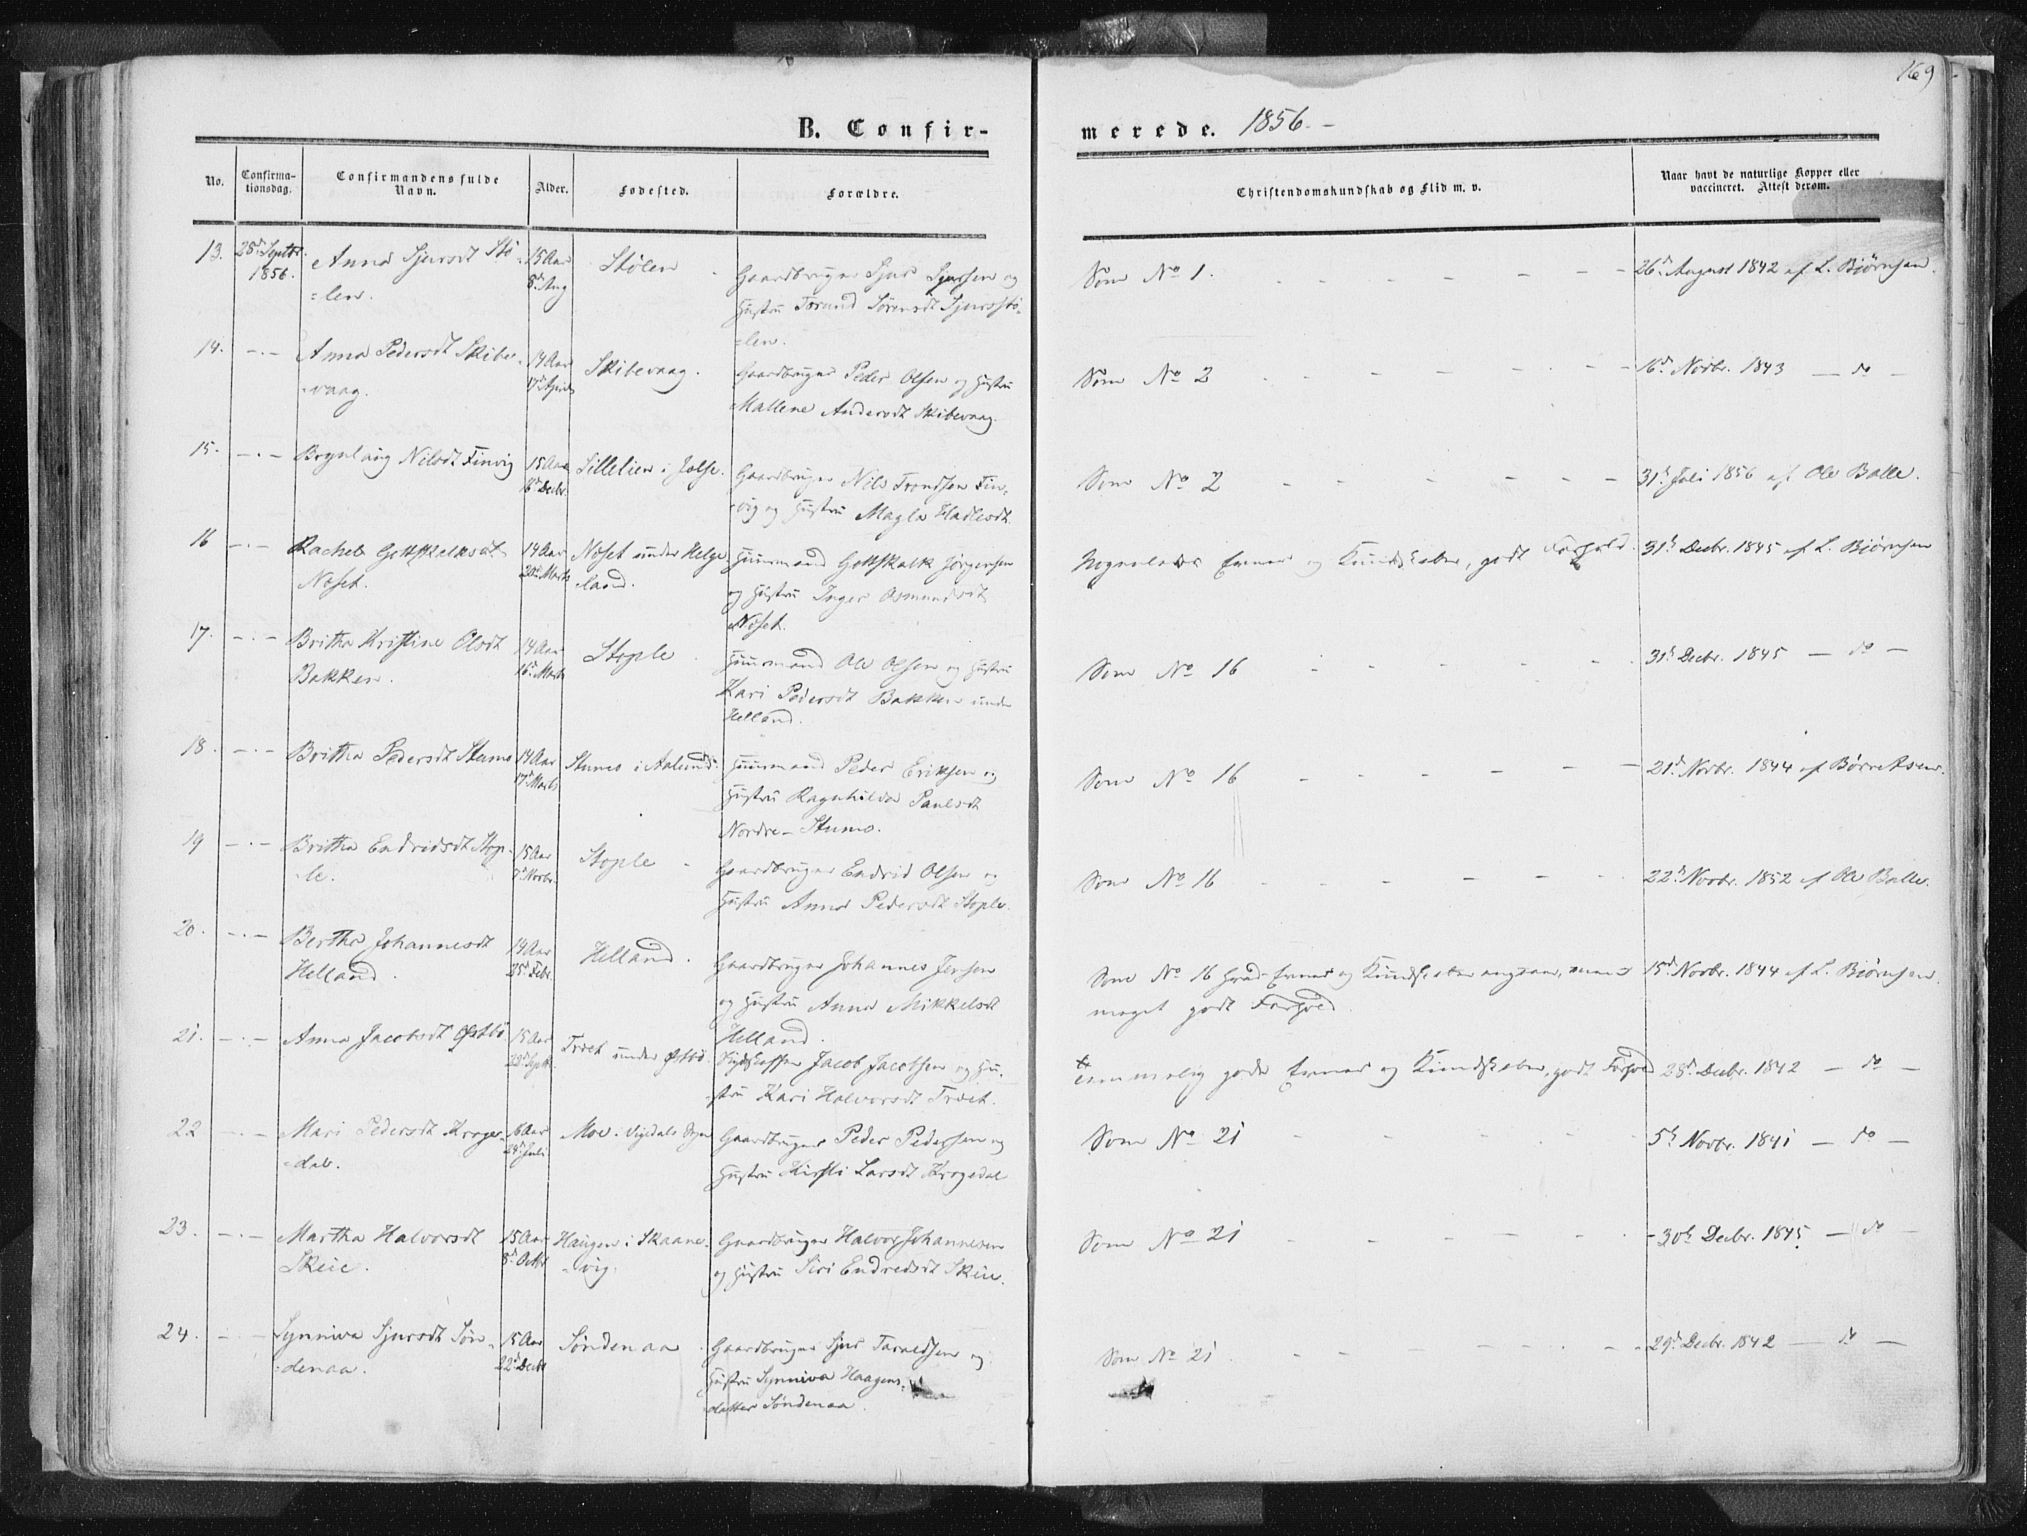 169
B. Confir-
merede. 1856.-
No.
Confirma-
tionsdag.
Confirmandens fulde
Navn.
Alder.
Fødested.
Forældre.
Christendomskundskab og Flid m. v.
Naar havt de naturlige Kopper eller
vaccineret. Attest derom.
13. 28d Septbr. 1856. Anna Sjursdt Stö-
=len.
15 Aar
8d Aug
Stölen
Gaardbruger Sjur Sjursen og
Hustru Torund Sörensdt Sjursstö-
=len.
Som No 1. - - - - - - 26d August 1842 af L. Bjørnsen.
14. -.- Anna Pedersdt Skibe-
-vaag.
14 Aar
17d April
Skibevaag.
Gaardbruger Peder Olsen og Hustru
Mallene Andersdt Skibevaag.
Som No 2 - - - - - - 16d Novbr. 1843 — do —
15. -.- Brynlaug Nilsdt Finvig
15 Aar
16d Decbr.
Lillelien i Jølse.
Gaardbruger Nils Trondsen Fin-
-vig og Hustru Magla Hadlesdt.
Som No 2 - - - - - - 31te Juli 1856 af Ole Balle.
16 -.- Rachel Gottskalksdt
Næset.
14 Aar
20d Marts
Næset under Helge-
land.
Huusmand Gottskalk Jörgensen
og Hustru Inger Asmundsdt
Næset.
Nogenledes Evner og Kundskaber, godt Forhold. 31te Decbr. 1845 af L. Bjørnsen
17. -.- Britha Kristine Olsdt
Bakken.
14 Aar
16d Marts
Stople
Huusmand Ole Olsen og Hustru
Kari Pedersdt Bakken under
Helland.
Som No 16 - - - - - 31te Decbr. 1845 — do —
18. -.- Britha Pedersdt Stumo
14 Aar
17d Marts
Stumo i Aalund.
Huusmand Peder Eriksen og
Hustru Ragnhilda Paulsdt
Nordre-Stumo.
Som No 16 - - - - - - 21d Novbr. 1844 af Børretsen.
19 -.- Britha Endridsdt Stop-
-le.
15 Aar
7d Novbr.
Stople -
Gaardbruger Endrid Olsen og
Hustru Anna Pedersdt Stople.
Som No 16 - - - - - - 22d Novbr. 1852 af Ole Balle.
20. -.- Bertha Johannesdt
Helland.
14 Aar
25d Febr.
Helland.
Gaardbruger Johannes Jensen
og Hustru Anna Mikkelsdt
Helland.
Som No 16 hvad Evner og Kundskaber angaar, men
meget godt Forhold.
15d Novbr. 1844 af L. Bjørnsen.
21. -.- Anna Jacobsdt Østbö
15 Aar
22d Septb.
Træet under Østbö.
Skydskaffer Jacob Jacobsen og Hu-
-stru Kari Halvorsdt Træet.
temmelig gode Evner og Kundskaber, godt Forhold 28d Decbr. 1842 — do —
22 -.- Mari Pedersdt Kroge-
-dal.
16 Aar
24d Juli
Moe i Vigdals Sogn
Gaardbruger Peder Pedersen og
Hustru Kirsti Larsdt Krogedal
Som No 21 - - - - - - 5te Novbr. 1841 — do —
23. -.- Martha Halvorsdt
Skeie.
15 Aar
8d Octbr
Haugen i Skaane-
-vig.
Gaardbruger Halvor Johannesen
og Hustru Siri Endredsdt Skeie.
Som No 21 - - - - - - 30te Decbr. 1845 — do —
24. - - Synniva Sjursdt Søn-
-denaa.
15 Aar
22d Decbr
Søndenaa
Gaardbruger Sjur Taraldsen og
Hustru Synniva Haagens-
-datter Søndenaa.
Som No 21 - - - - - - 29d Decbr. 1842 — do —